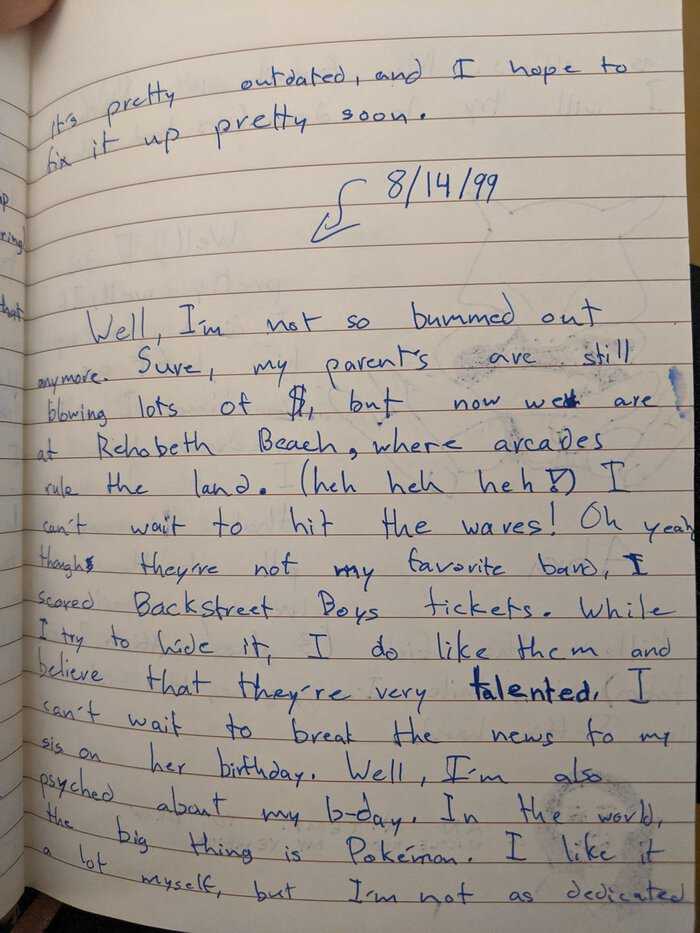 It's pretty outdated, and I hope to
fix it up pretty soon.
8/14/99
Well, I'm not so bummed out
anymore. Sure, my parent's are still
blowing lots of $, but now we are
at Rehobeth Beach, where arcades
rule the land. (heh heh heh!) I
can't wait to hit the waves! Oh yeah
though they're not my favorite band, I
scored Backstreet Boys tickets. While
I try to hide it, I do like them and
believe that they're very talented. I
can't wait to break the news to my
sis on her birthday. Well, I'm also
psyched about my b-day. In the world,
the big thing is Pokémon. I like it
a lot myself, but I'm not as dedicated